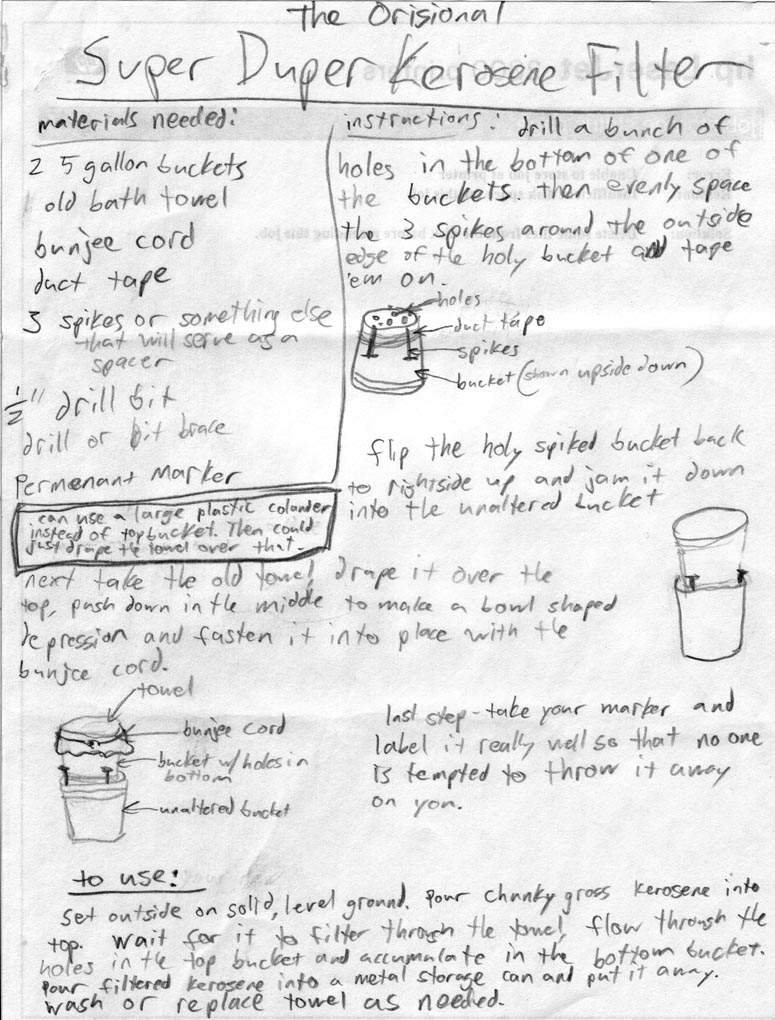 The Orisional
Super Duper Kerosene Filter
materials needed:
2 5 gallon buckets
old bath towel
bunjee cord
duct tape
3 spikes or something else
that will serve as a
spacer
1/2" drill bit
drill or bit brace
Permenant Marker
can use a large plastic colander
instead of top bucket. Then could
just drape the towel over that.
instructions: drill a bunch of
holes in the bottom of one of
the buckets. then evenly space
the 3 spikes around the outside
edge of the holy bucket and tape
'em on.
holes
duct tape
spikes
bucket (shown upside down)
flip the holy spiked bucket back
to rightside up and jam it down
into the unaltered bucket
next take the old towel, drape it over the
top, push down in the middle to make a bowl shaped
depression and fasten it into place with the
bunjee cord.
towel
bunjee cord
bucket w/ holes in
bottom
unaltered bucket
last step - take your marker and
label it really well so that no one
is tempted to throw it away
on you.
to use:
Set outside on solid, level ground. Pour chunky gross kerosene into
top. Wait for it to filter through the towel, flow through the
holes in the top bucket and accumulate in the bottom bucket.
Pour filtered kerosene into a metal storage can and put it away.
wash or replace towel as needed.